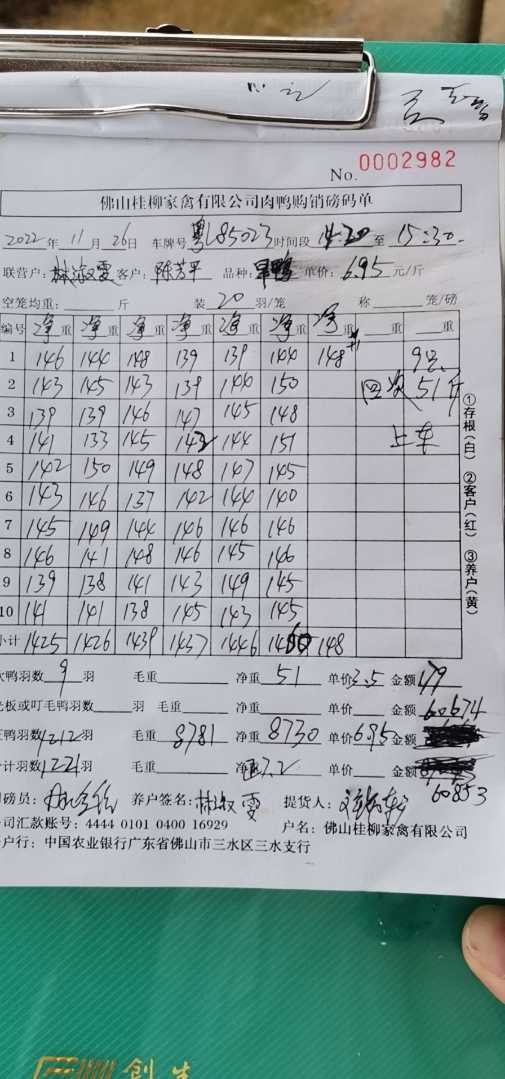 No. 0002982
佛山桂柳家禽有限公司肉鸭购销磅码单
2022年 11月 26日 车牌号 粤L85023 时间段 14:20 至 15:30
联营户: 林淑雯 客户: 陈芳平 品种: 旱鸭 单价: 6.95 元/斤
空笼均重: 斤 装 20 羽/笼 称 笼/磅
编号 净重 净重 净重 净重 净重 净重 净重 重 重
1 146 144 148 139 139 144 148
2 143 145 143 139 144 150 51斤
3 139 139 146 147 145 148
4 141 133 145 142 144 151 上车
5 142 150 149 148 147 145
6 143 146 137 142 144 140
7 145 149 144 146 146 146
8 146 141 148 146 145 146
9 139 138 141 143 149 145
10 141 141 138 145 143 145
小计 1425 1426 1439 1437 1446 148
鸭羽数 9 羽 毛重 净重 51 单价 3.5 金额 179
板或叮毛鸭羽数 羽 毛重 净重 单价 金额 60674
鸭羽数 1212 羽 毛重 8781 净重 8730 单价 6.95 金额
计羽数 1221 羽 毛重 净重 7.2 单价 金额
60853
磅员: 养户签名: 林淑雯 提货人:
司汇款账号: 4444 0101 0400 16929 户名: 佛山桂柳家禽有限公司
户行: 中国农业银行广东省佛山市三水区三水支行
①存根(白) ②客户(红) ③养户(黄)